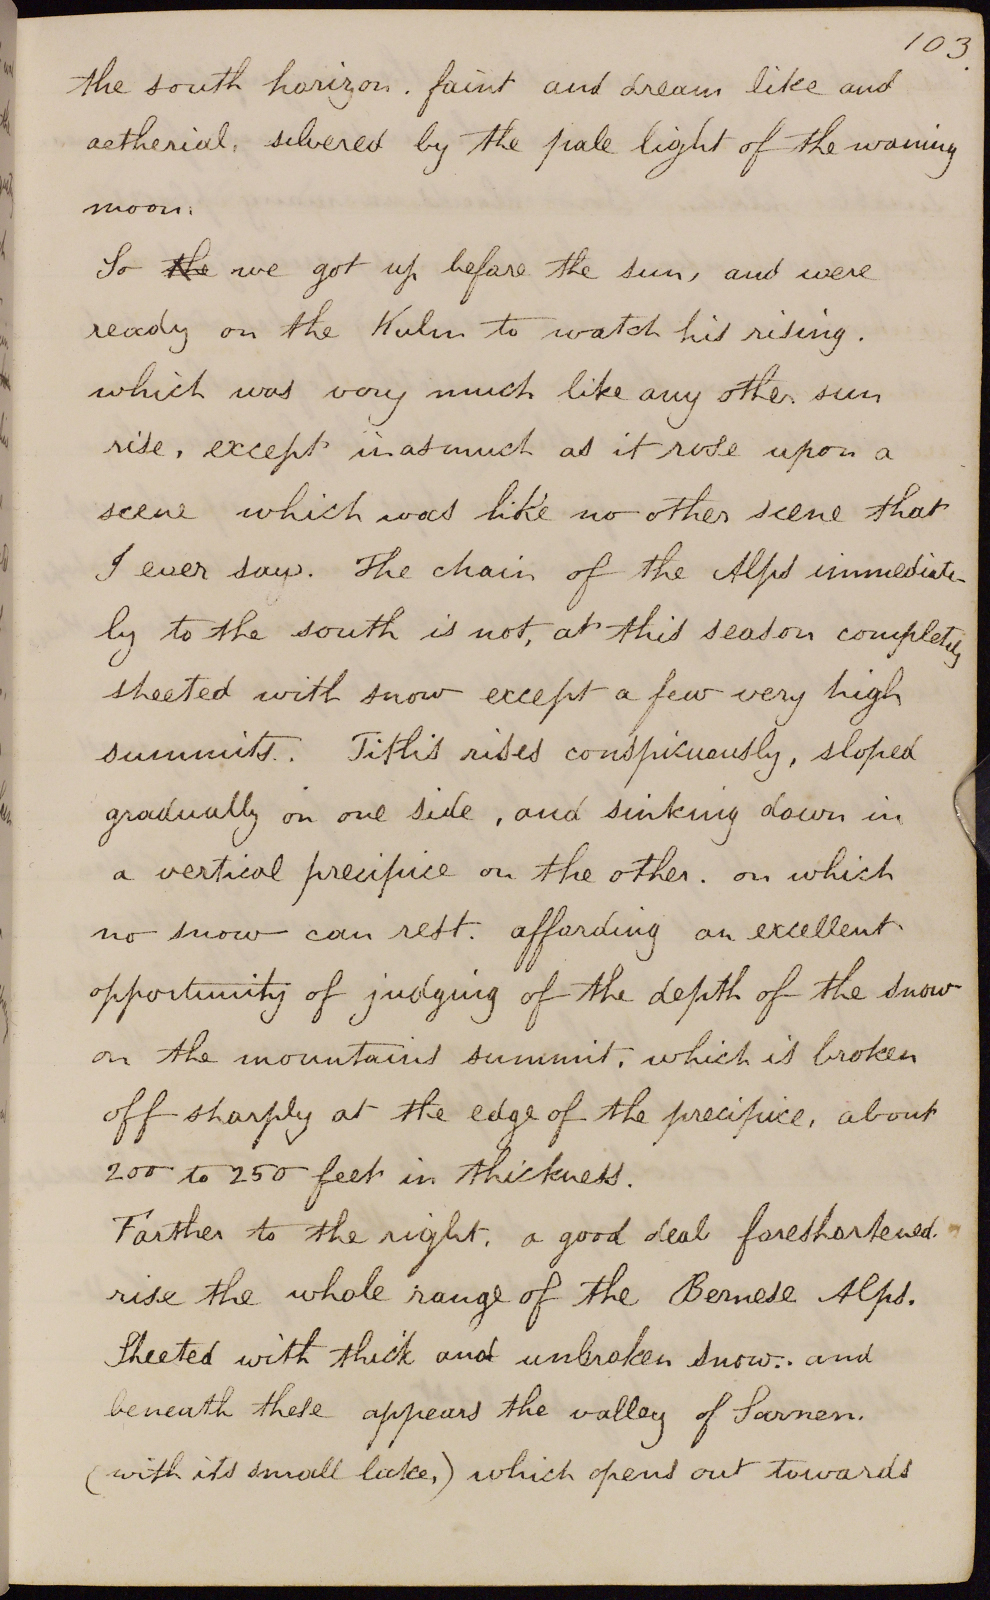 103.
the south horizon. faint and dream like and
aetherial, silvered by the pale light of the waning
moon.
So the we got up before the sun, and were
ready on the Kulm to watch his rising.
which was very much like any other sun
rise, except inasmuch as it rose upon a
scene which was like no other scene that
I ever saw. The chain of the Alps immediate-
ly to the south is not, at this season completely
sheeted with snow except a few very high
summits. Titlis rises conspicuously, sloped
gradually on one side, and sinking down in
a vertical precipice on the other. on which
no snow can rest. affording an excellent
opportunity of judging of the depth of the snow
on the mountains summit, which is broken
off sharply at the edge of the precipice, about
200 to 250 feet in thickness.
Farther to the right, a good deal foreshortened.
rise the whole range of the Bernese Alps.
Sheeted with thick and unbroken snow.. and
beneath these appears the valley of Sarnen.
(with its small lake,) which opens out towards